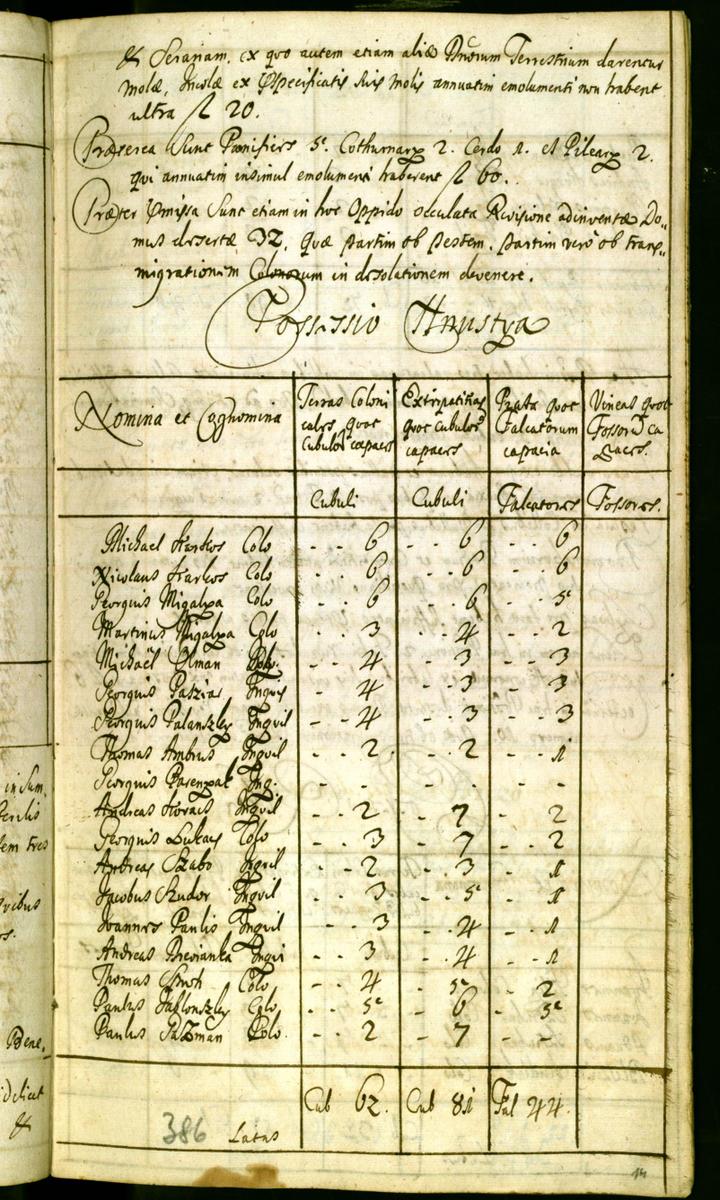 & Serariam, ex quo autem etiam aliæ Dnorum Terrestrium darentur
molæ, Incolæ ex Specificatis suis molis annuatim emolumenti non habent
ultra fl 20.
Præterea sunt Panifices 5. Cothurnary 2. Cerdo 1. et Pileary 2.
qui annuatim insimul emolumenti haberent fl 60.
Præter Omissa Sunt etiam in hoc Oppido occulata Revisione adinventæ Do-
mus desertæ 32. quæ partim ob pestem, partim vero ob trans-
migrationem Colonorum in desolationem devenere.
Possessio Hrustya
Nomina et Cognomina | Terras Coloni cales quot Cubulos capaces | Extirpatitias quot Cubulos capaces | Prata quot Falcatorum capacia | Vineas quot Fossorum ca paces.
Cubuli | Cubuli | Falcatores | Fossores.
Michael Farkos Colo - - 6 - - 6 - - 6
Nicolaus Farkos Colo - - 6 - - 6 - - 6
Georgius Migalya Colo - - 6 - - 6 - - 5
Martinus Migalya Colo - - 3 - - 4 - - 2
Michaël Olman Colo - - 4 - - 3 - - 3
Georgius Patzias Inquil - - 4 - - 3 - - 3
Georgius Palanszky Inquil - - 4 - - 3 - - 3
Thomas Ambrus Inquil - - 2 - - 2 - - 1
Georgius Inq. - - - - - -
Andreas Kovacs Inquil - - 2 - - 7 - - 2
Georgius Lukacs Colo - - 3 - - 7 - - 2
Andreas Szabo Inquil - - 2 - - 3 - - 1
Jacobus Szudor Inquil - - 3 - - 5 - - 1
Joannes Paulis Inquil - - 3 - - 4 - - 1
Andreas Brevianka Inquil - - 3 - - 4 - - 1
Thomas Colo - - 4 - - 5 - - 2
Paulus Jablonszky Colo - - 5 - - 6 - - 5
Paulus Salzman Colo - - 2 - - 7 - -
Cub 62. Cub 81 Fal 44.
386 Latus
in Sum.
em tres
Bene.
&